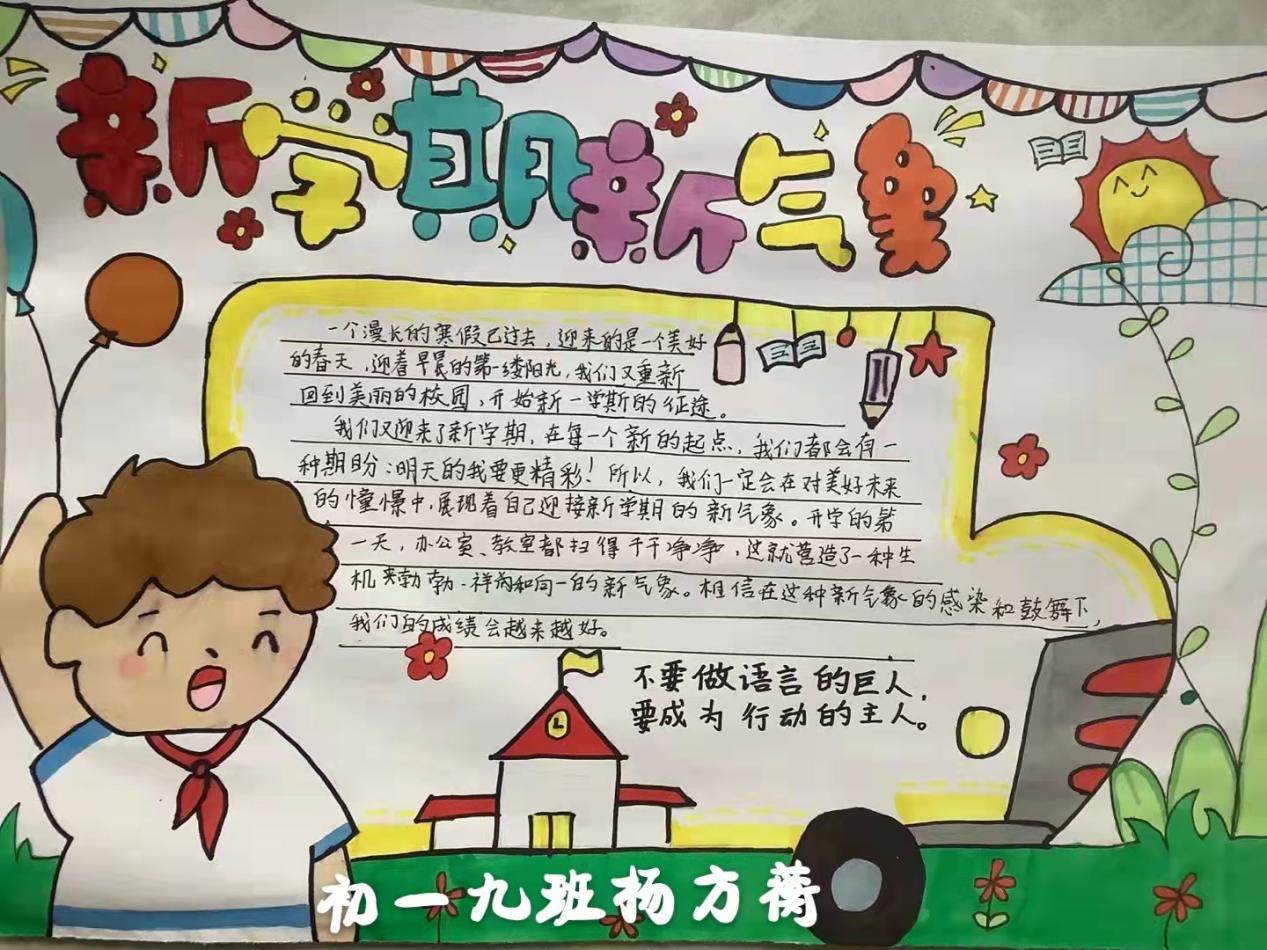 新学期新气象
一个漫长的寒假已过去，迎来的是一个美好
的春天，迎着早晨的第一缕阳光，我们又重新
回到美丽的校园，开始新一学斯的征途。
我们又迎来了新学期，在每一个新的起点，我们都会有一
种期盼：明天的我要更精彩！所以，我们一定会在对美好未来
的憧憬中，展现着自己迎接新学期的新气象。开学的第
一天，办公室、教室都扫得干干净净，这就营造了一种生
机来勃勃．祥为和向一的新气象。相信在这种新气象的感染和鼓舞下，
我们的成绩会越来越好。
不要做语言的巨人，
要成为行动的主人。
初一九班杨方蘅